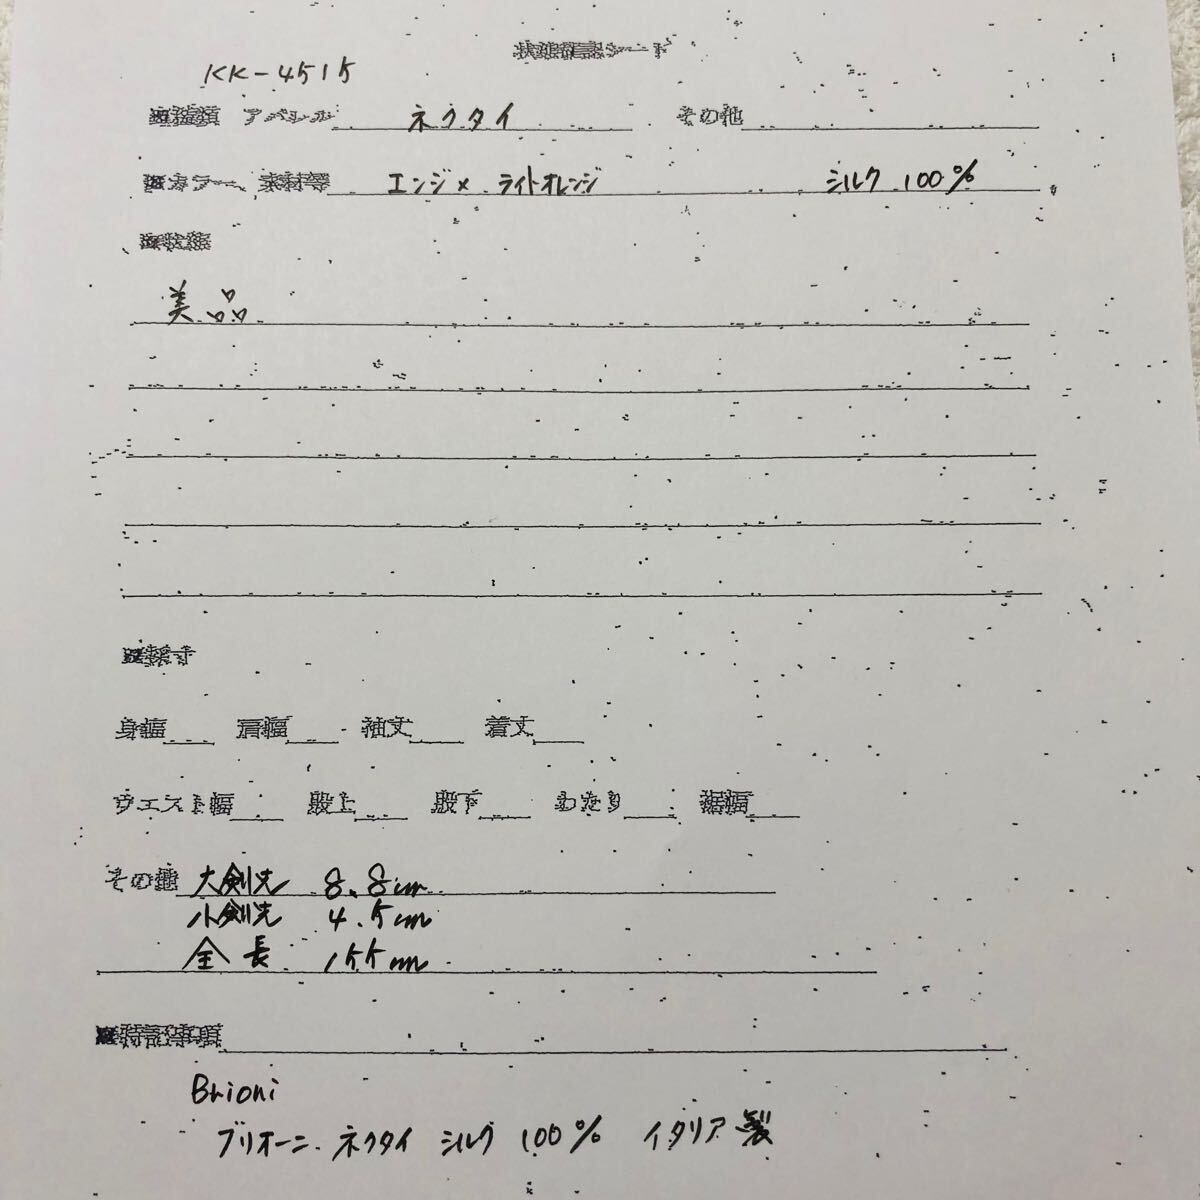 状態確認シート
KK-4515
※種類 アパレル ネクタイ その他
※カラー、素材等 エンジ× ライトオレンジ シルク 100%
※状態
美品
※採寸
身幅 肩幅 袖丈 着丈
ウエスト幅 股上 股下 わたり 裾幅
その他 大剣先 8.8cm
小剣先 4.5cm
全長 155cm
※特記事項
Brioni
ブリオーニ ネクタイ シルク 100% イタリア製